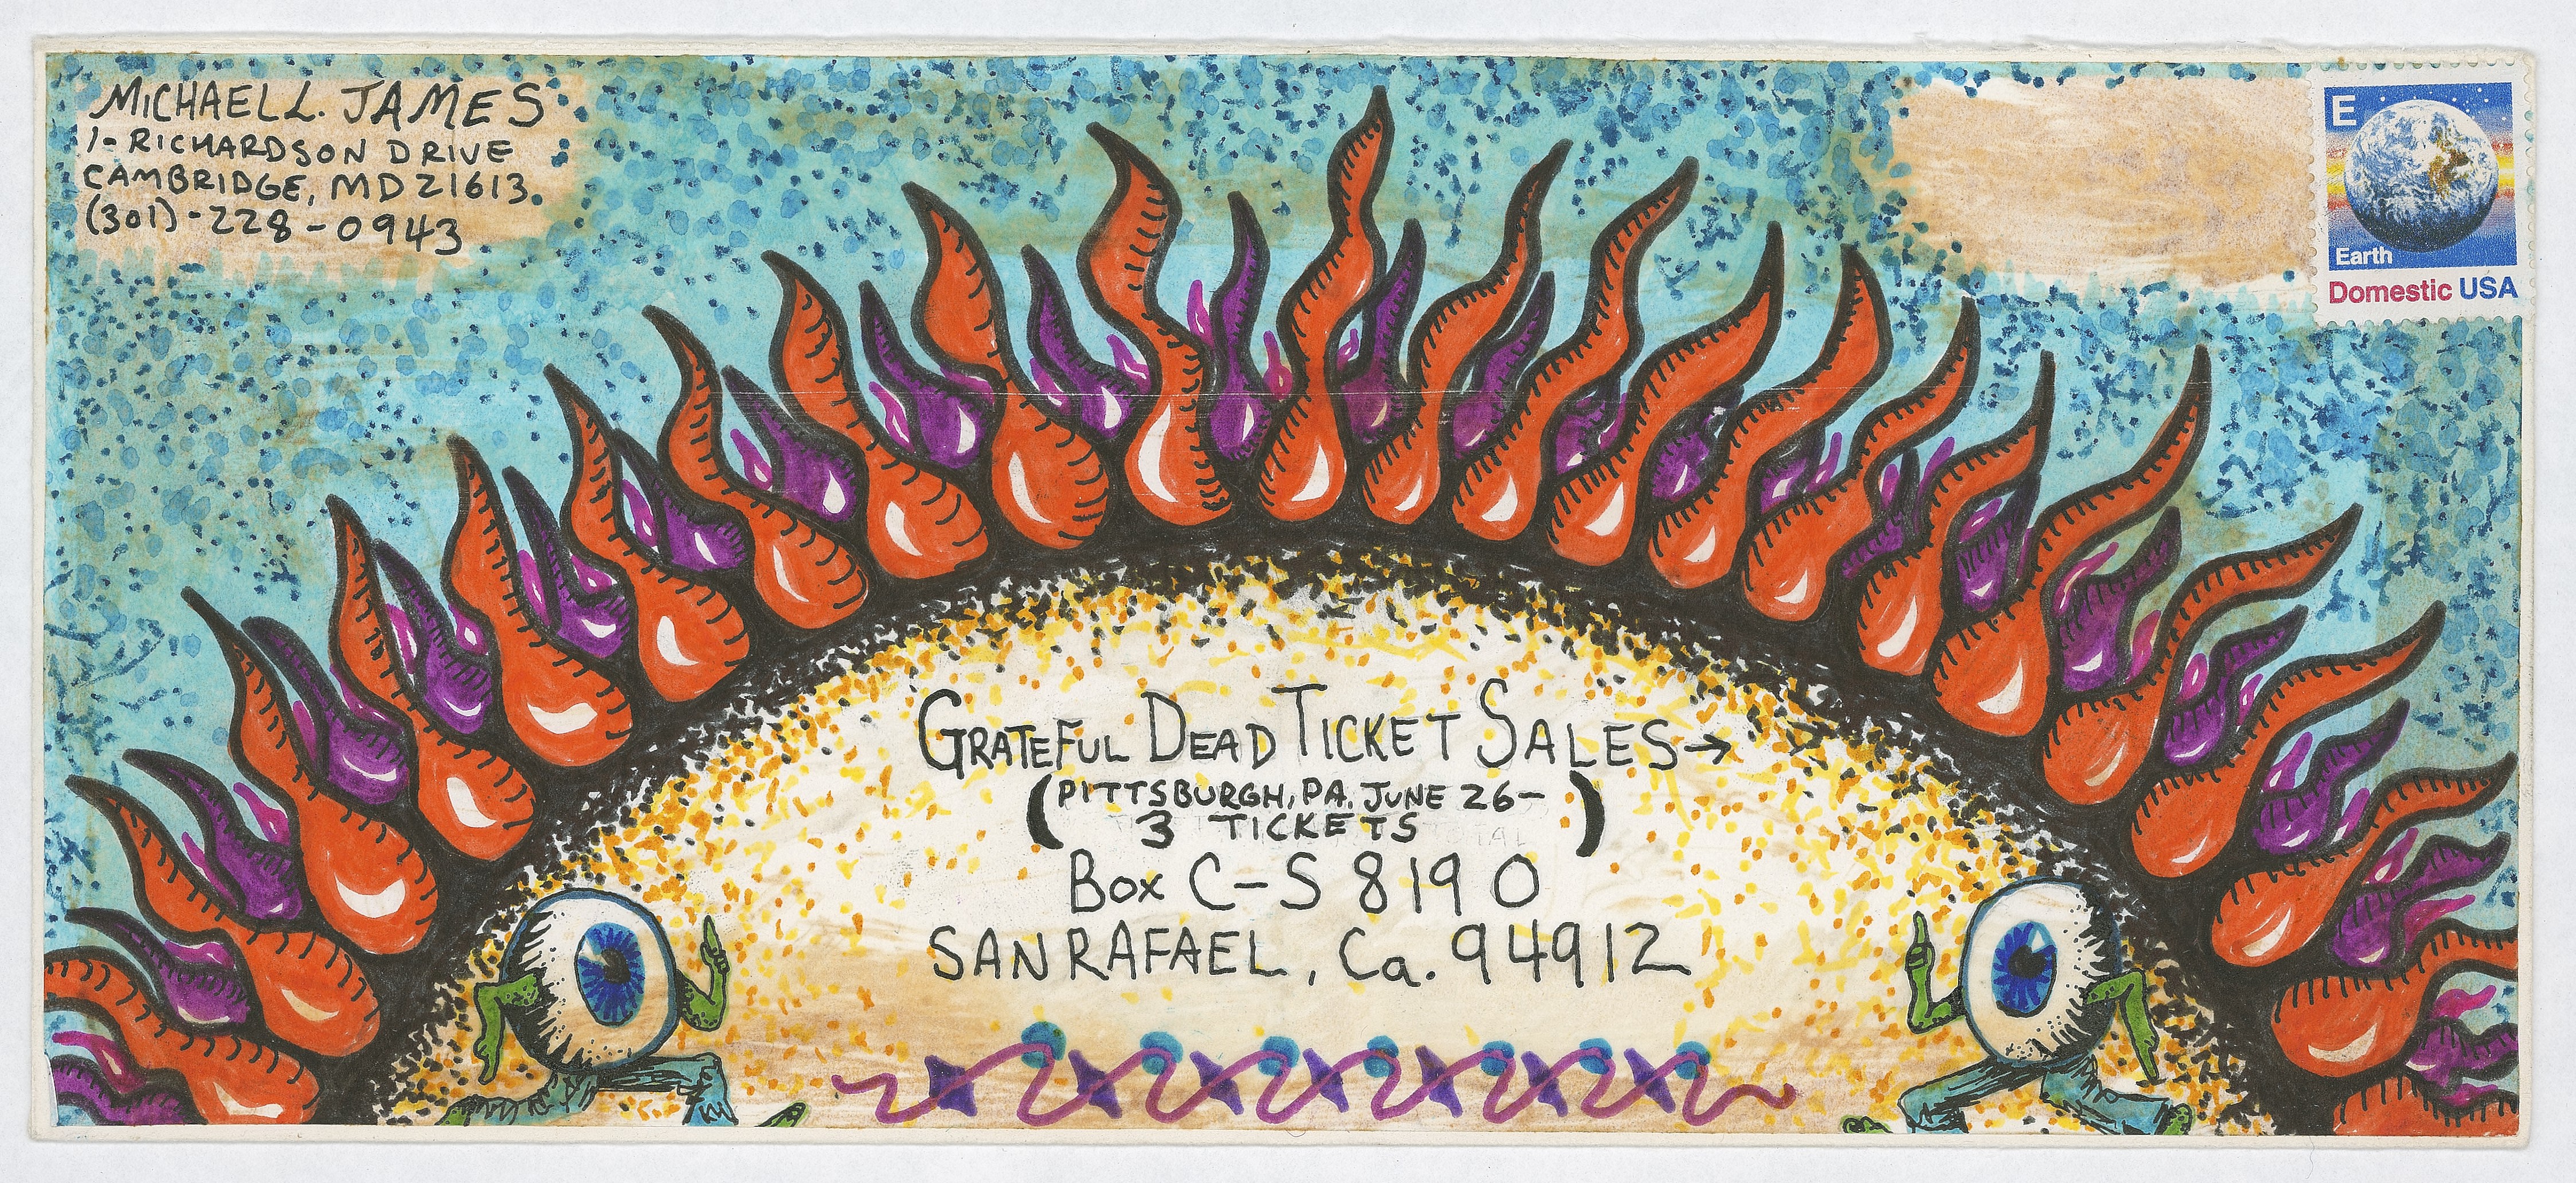 MICHAEL L. JAMES
1-RICHARDSON DRIVE
CAMBRIDGE, MD 21613.
(301)-228-0943
E
Earth
Domestic USA
GRATEFUL DEAD TICKET SALES→
(PITTSBURGH, PA. JUNE 26-
3 TICKETS)
BOX C-S 8190
SAN RAFAEL, Ca. 94912